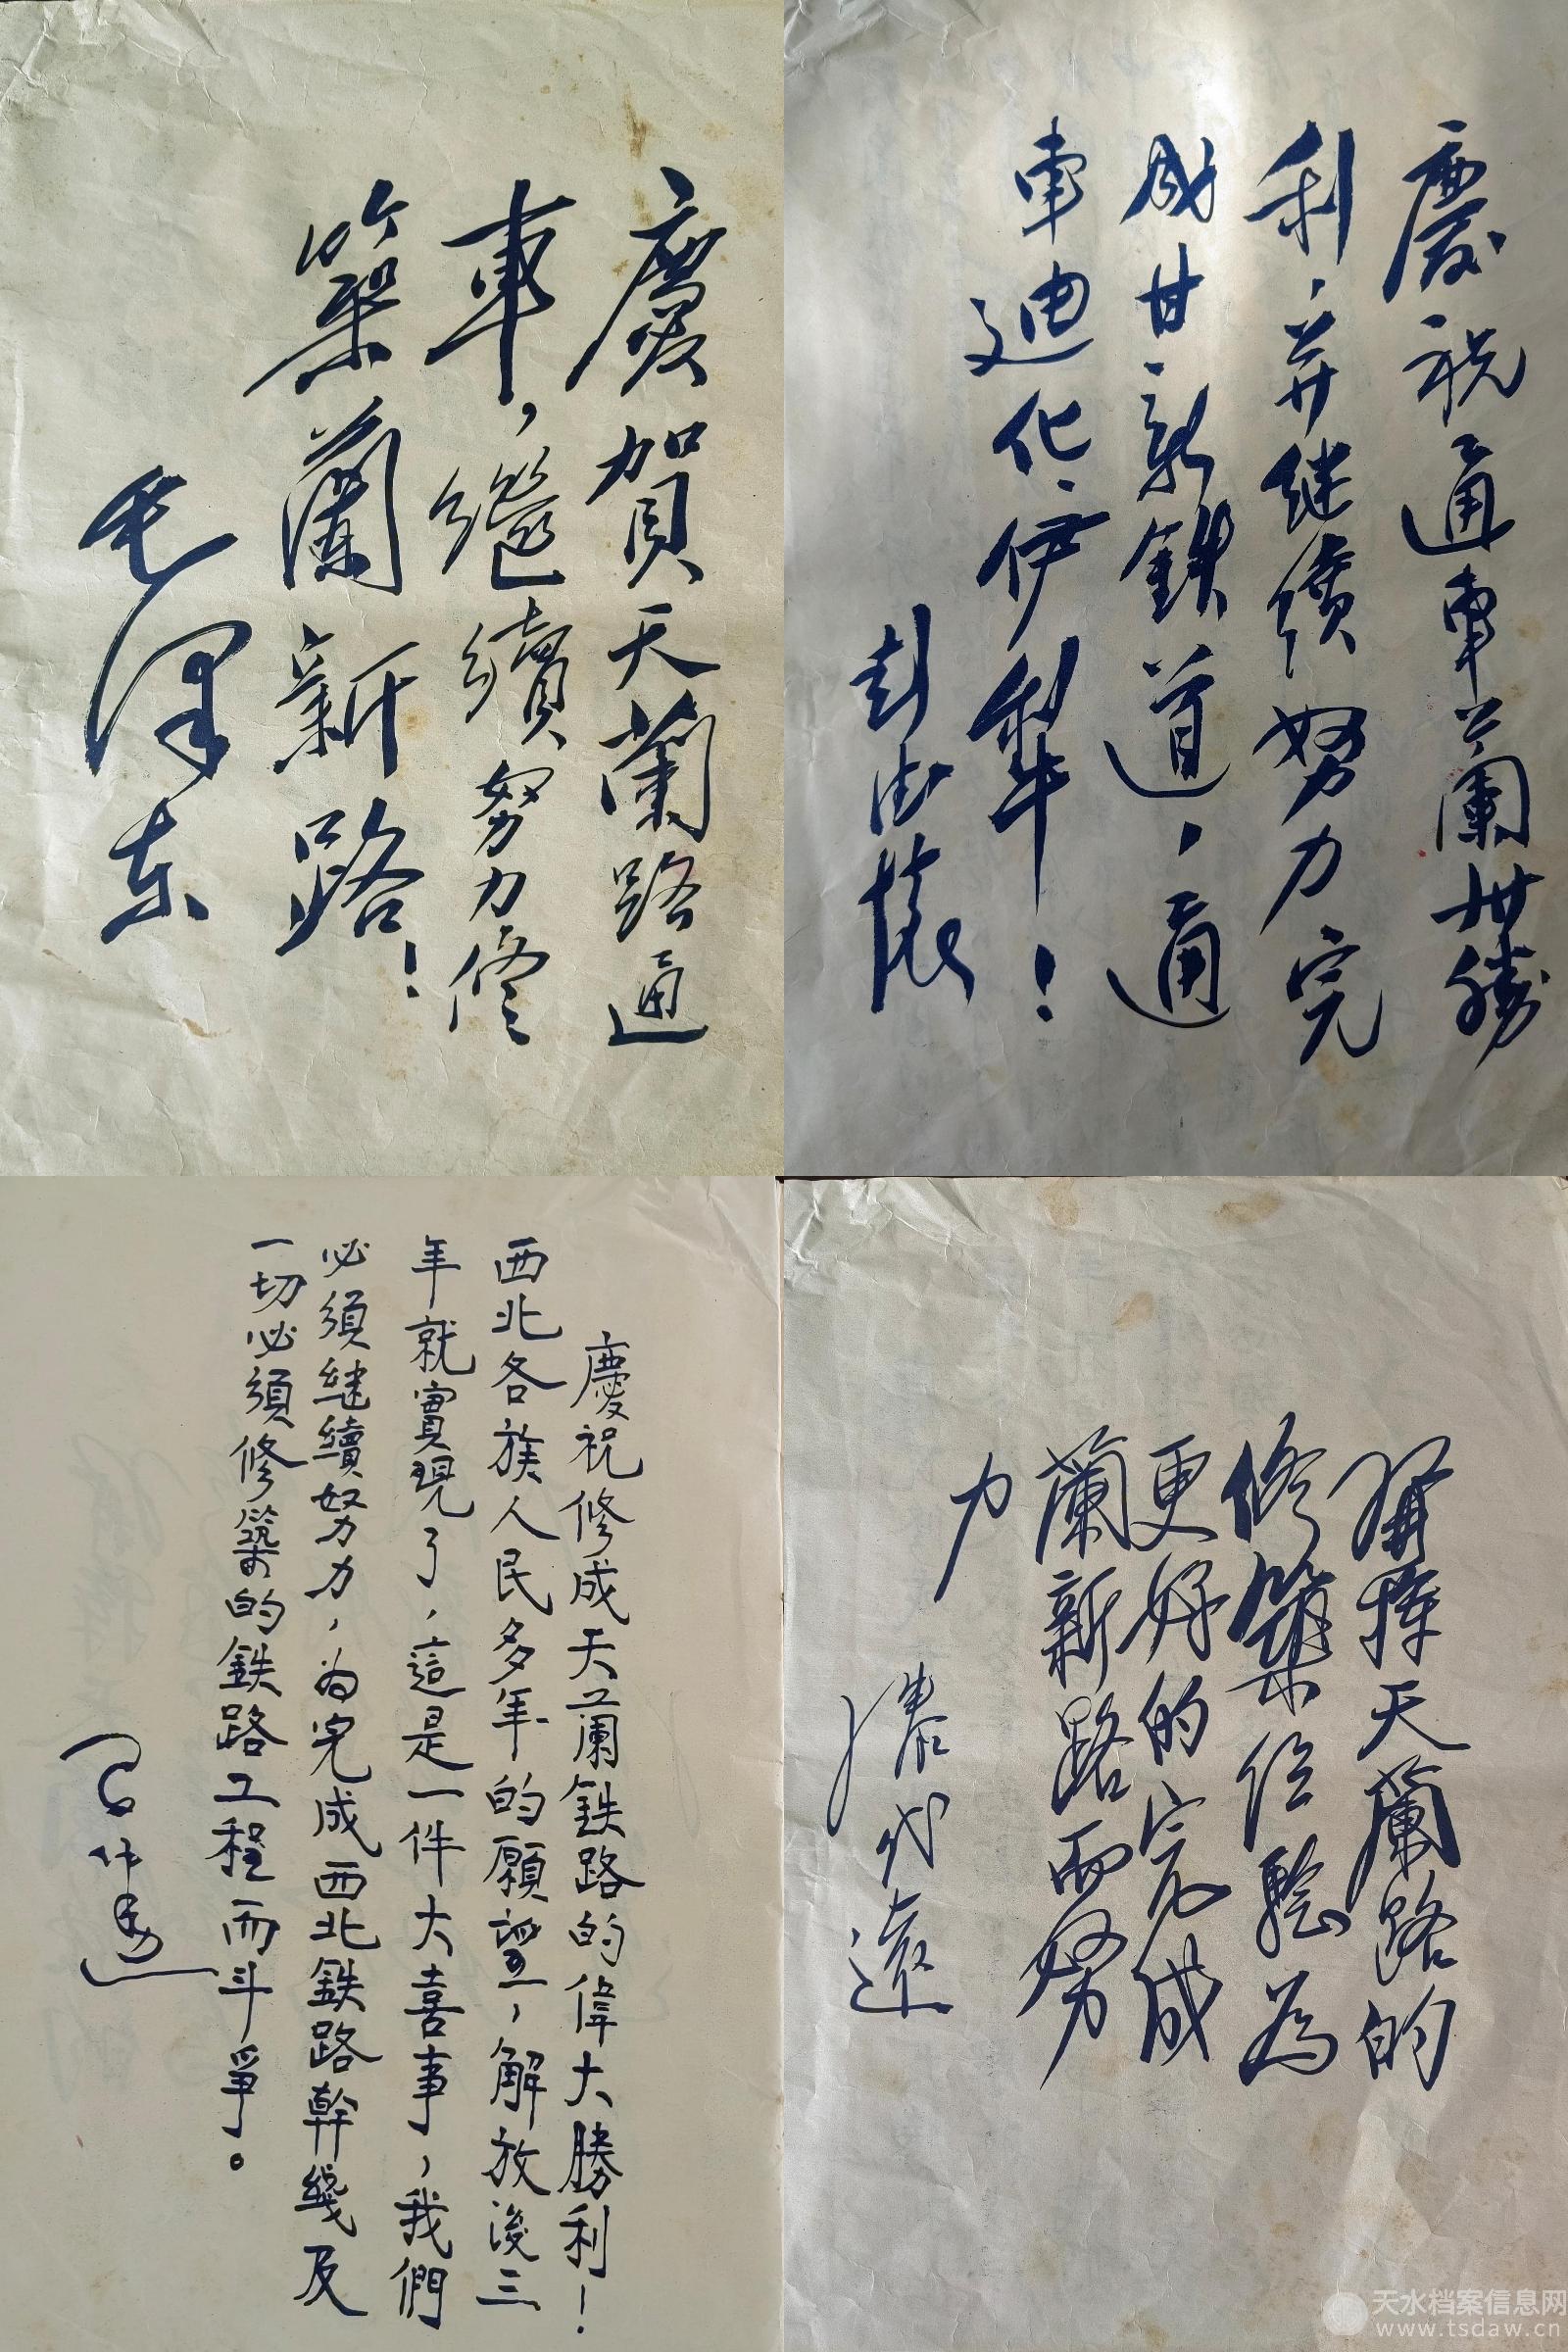 慶賀天蘭路通
車，繼續努力修
築蘭新路！
毛澤东
慶祝通車蘭州勝
利，并继续努力完
成甘新鉄道，通
車迪化、伊犁！
彭德懷
慶祝修成天蘭鉄路的偉大勝利！
西北各族人民多年的願望，解放後三
年就實現了，這是一件大喜事，我們
必須继續努力，为完成西北鉄路幹綫及
一切必須修築的鉄路工程而斗爭。
習仲勛
發揮天蘭路的
修築经驗為
更好的完成
蘭新路而努
力
滕代遠
天水档案信息网
www.tsdaw.cn